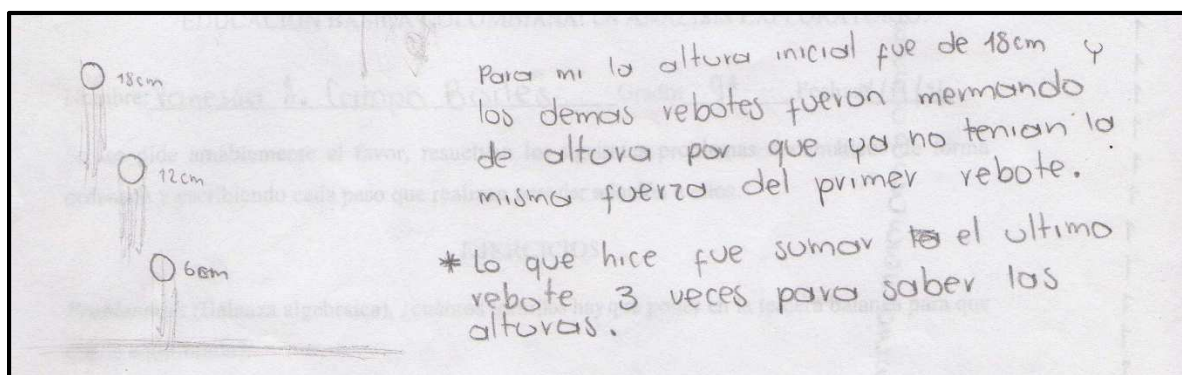 18cm
12cm
6cm
Para mi la altura inicial fue de 18cm y
los demas rebotes fueron mermando
de altura por que ya no tenian la
misma fuerza del primer rebote.
* Lo que hice fue sumar el ultimo
rebote 3 veces para saber las
alturas.